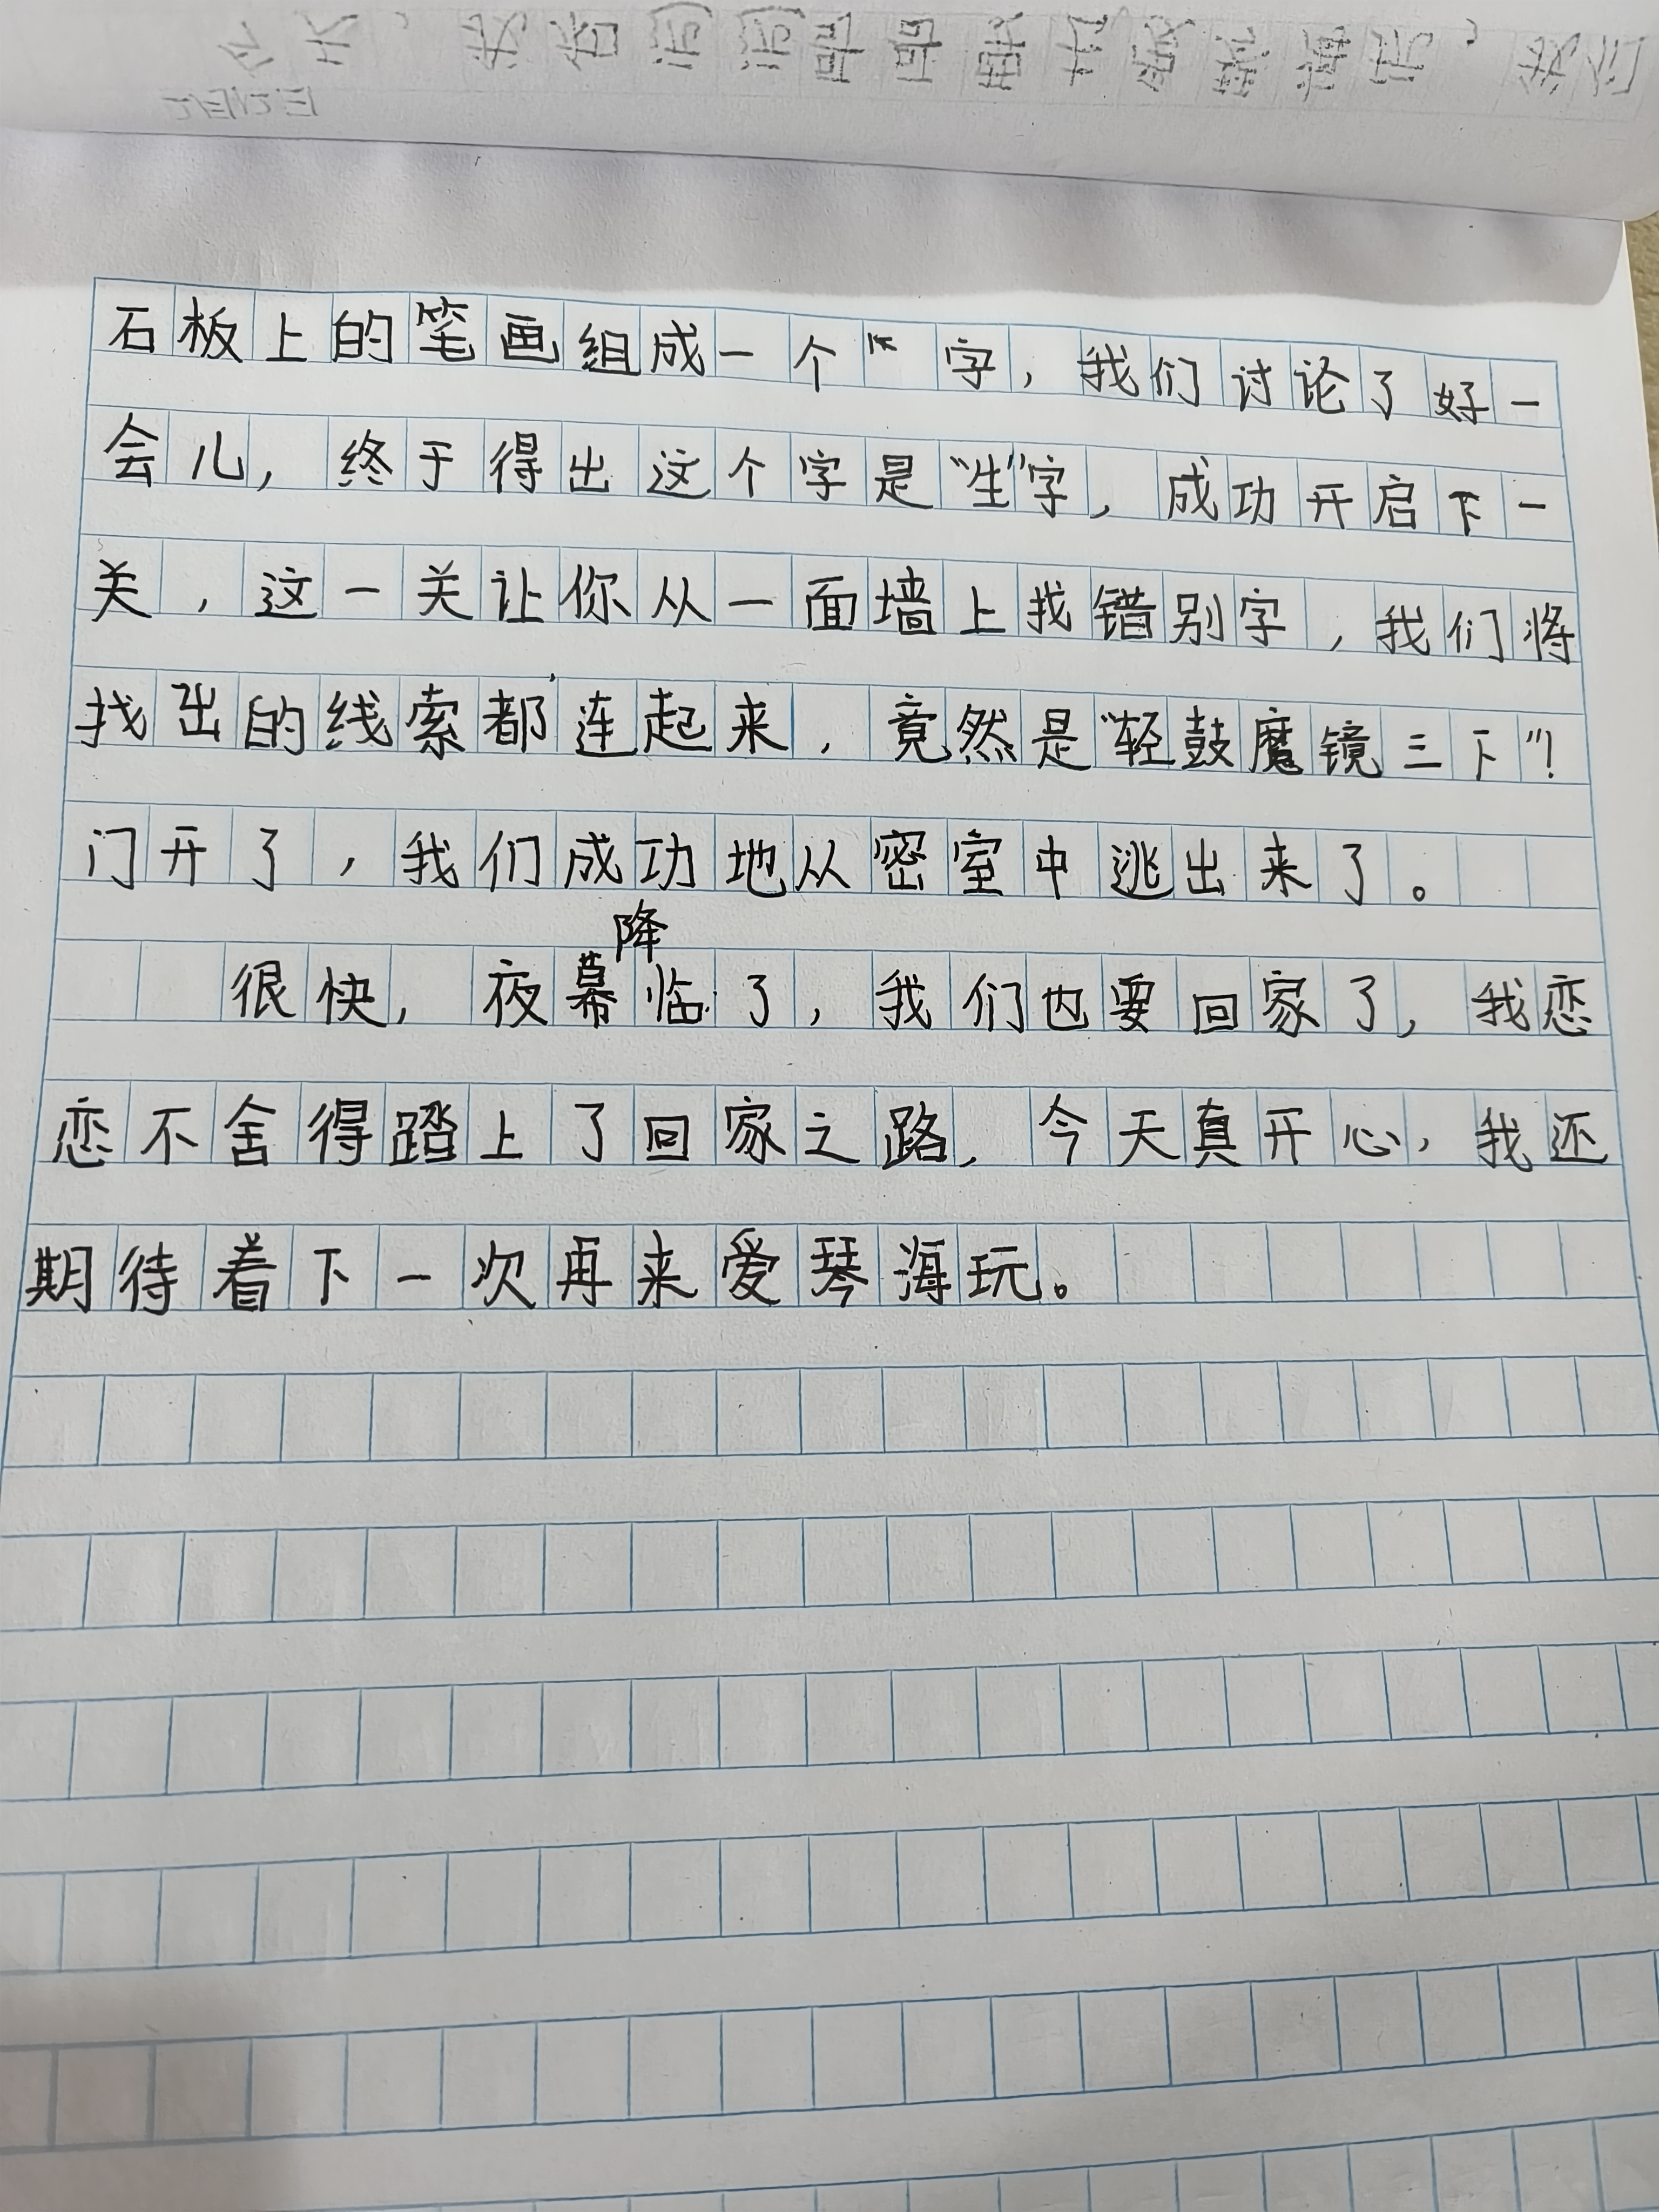 石板上的笔画组成一个 字，我们讨论了好一
会儿，终于得出这个字是“生”字，成功开启下一
关，这一关让你从一面墙上找错别字，我们将
找出的线索都连起来，竟然是“轻鼓魔镜三下”！
门开了，我们成功地从密室中逃出来了。
很快，夜幕降临了，我们也要回家了，我恋
恋不舍得踏上了回家之路，今天真开心，我还
期待着下一次再来爱琴海玩。